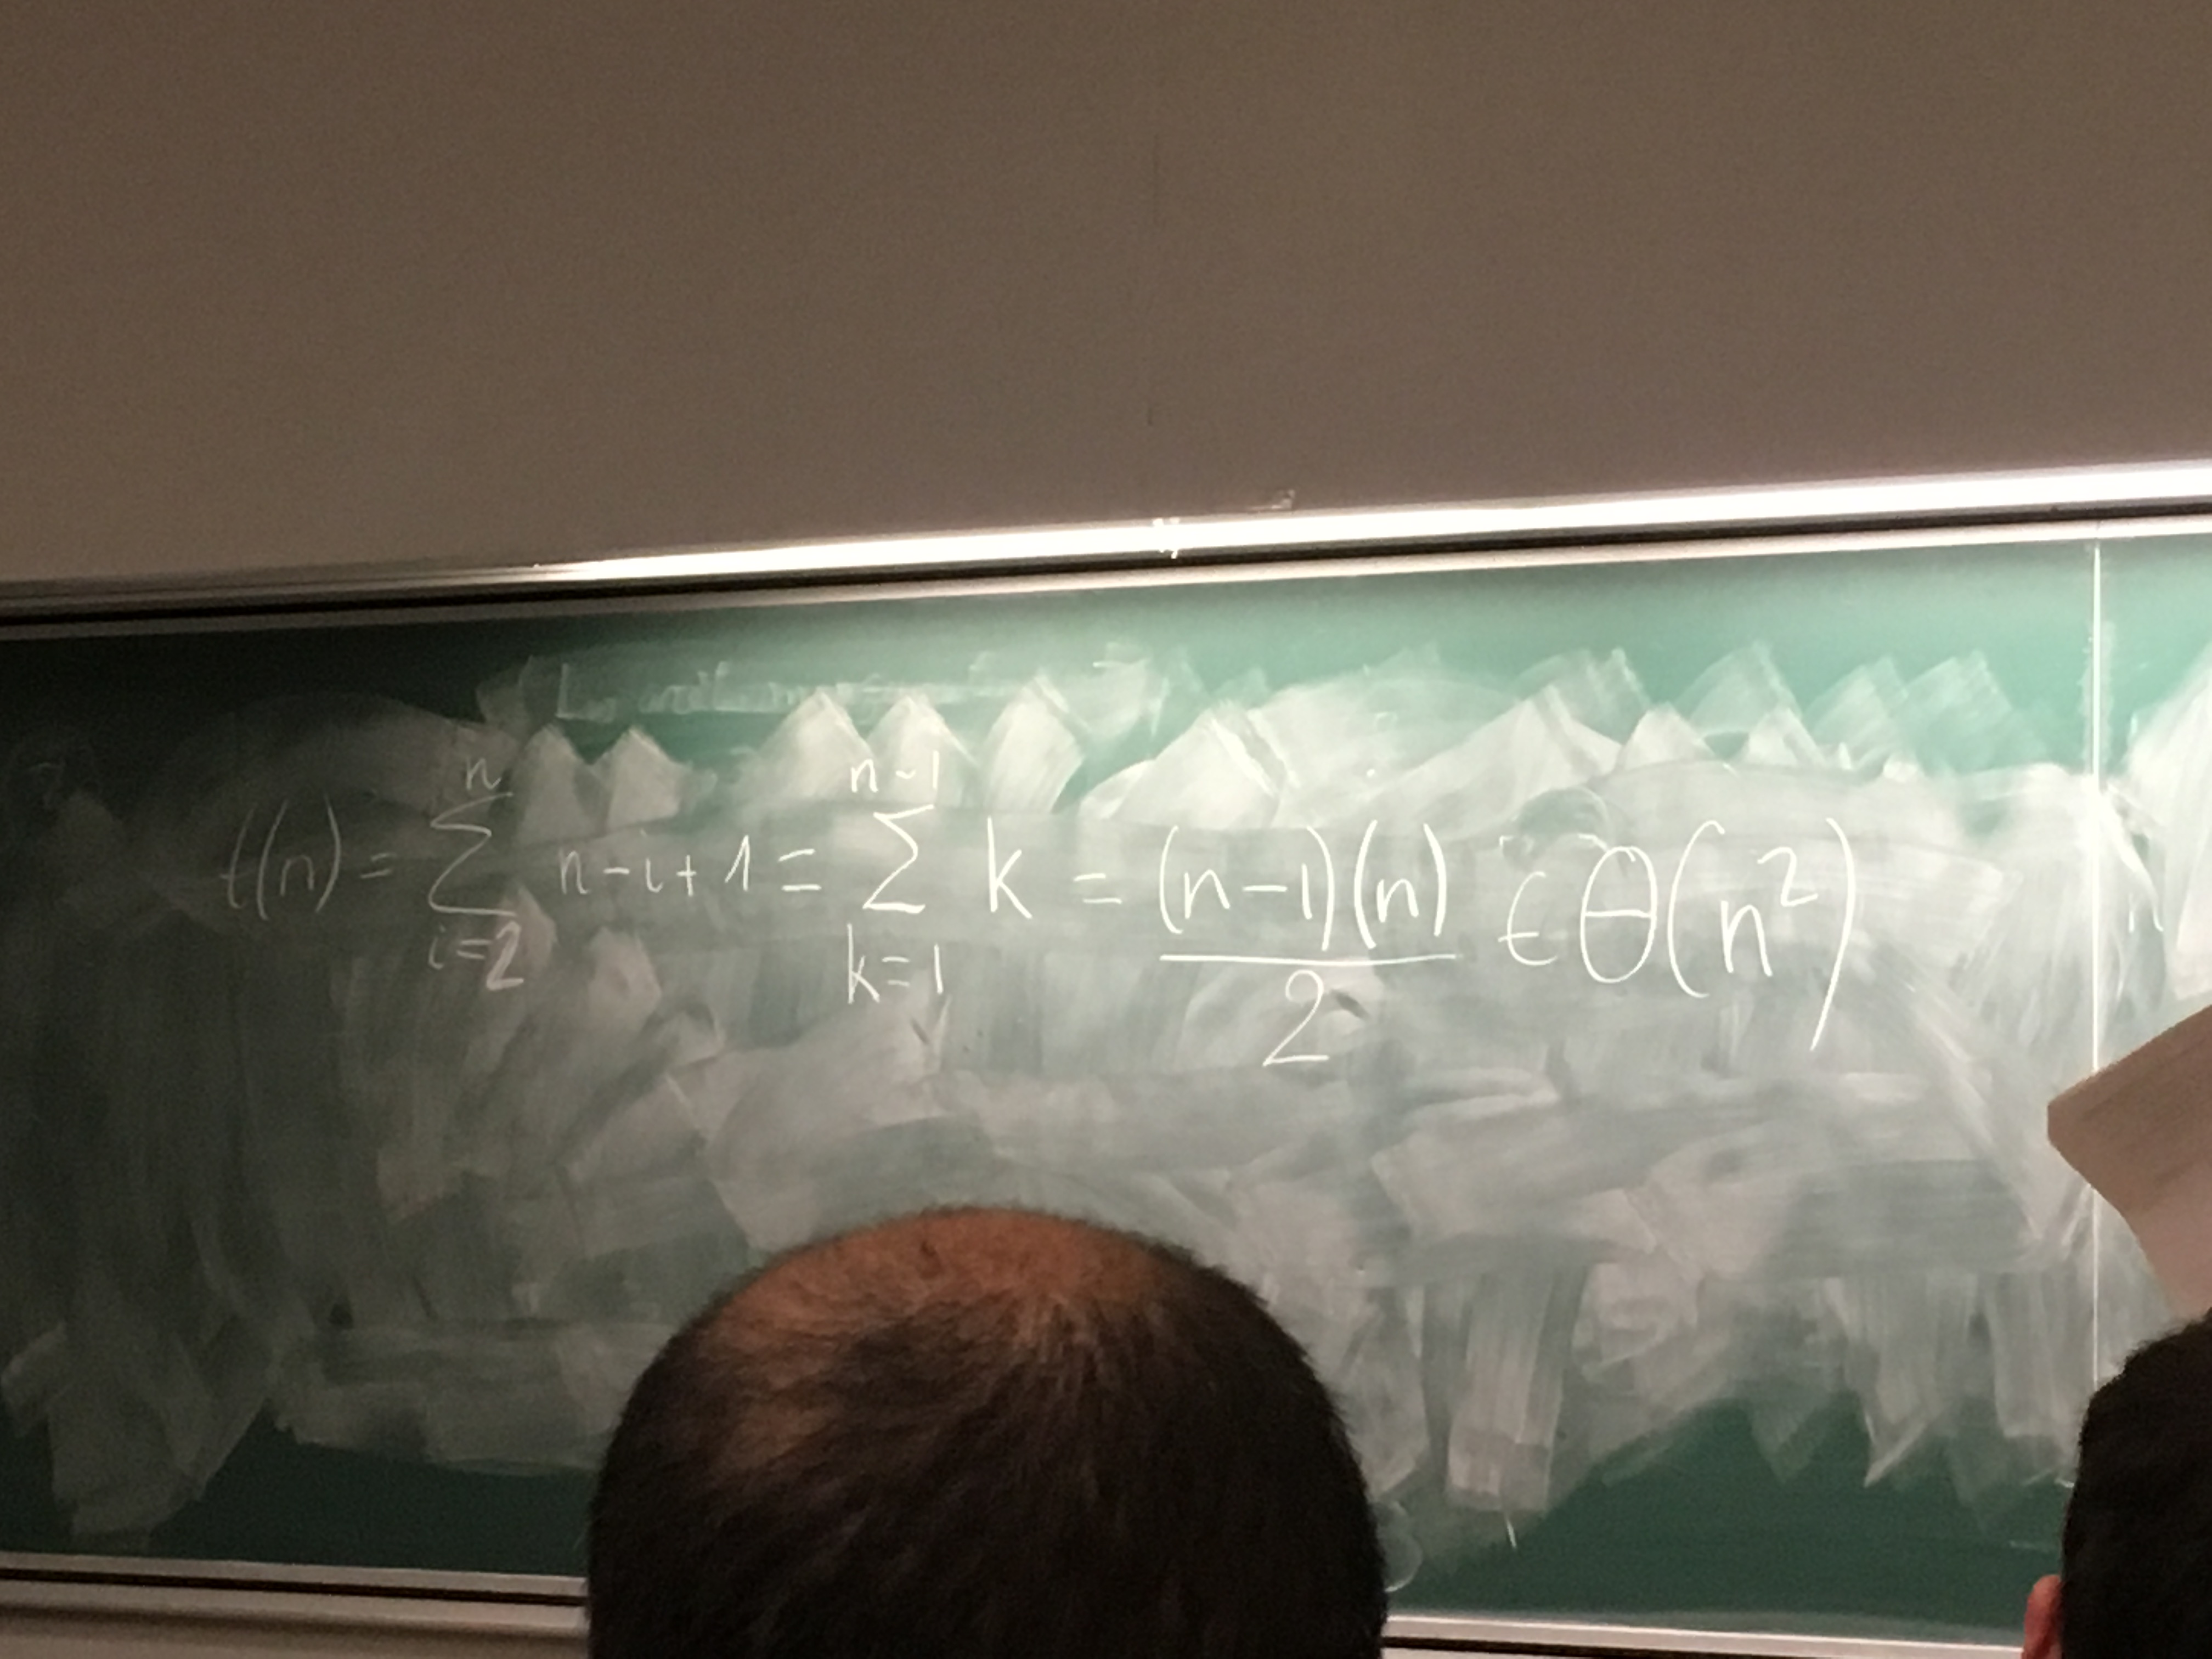 t(n) = \sum_{i=2}^{n} n-i+1 = \sum_{k=1}^{n-1} k = \frac{(n-1)(n)}{2} ∈ Θ(n^2)